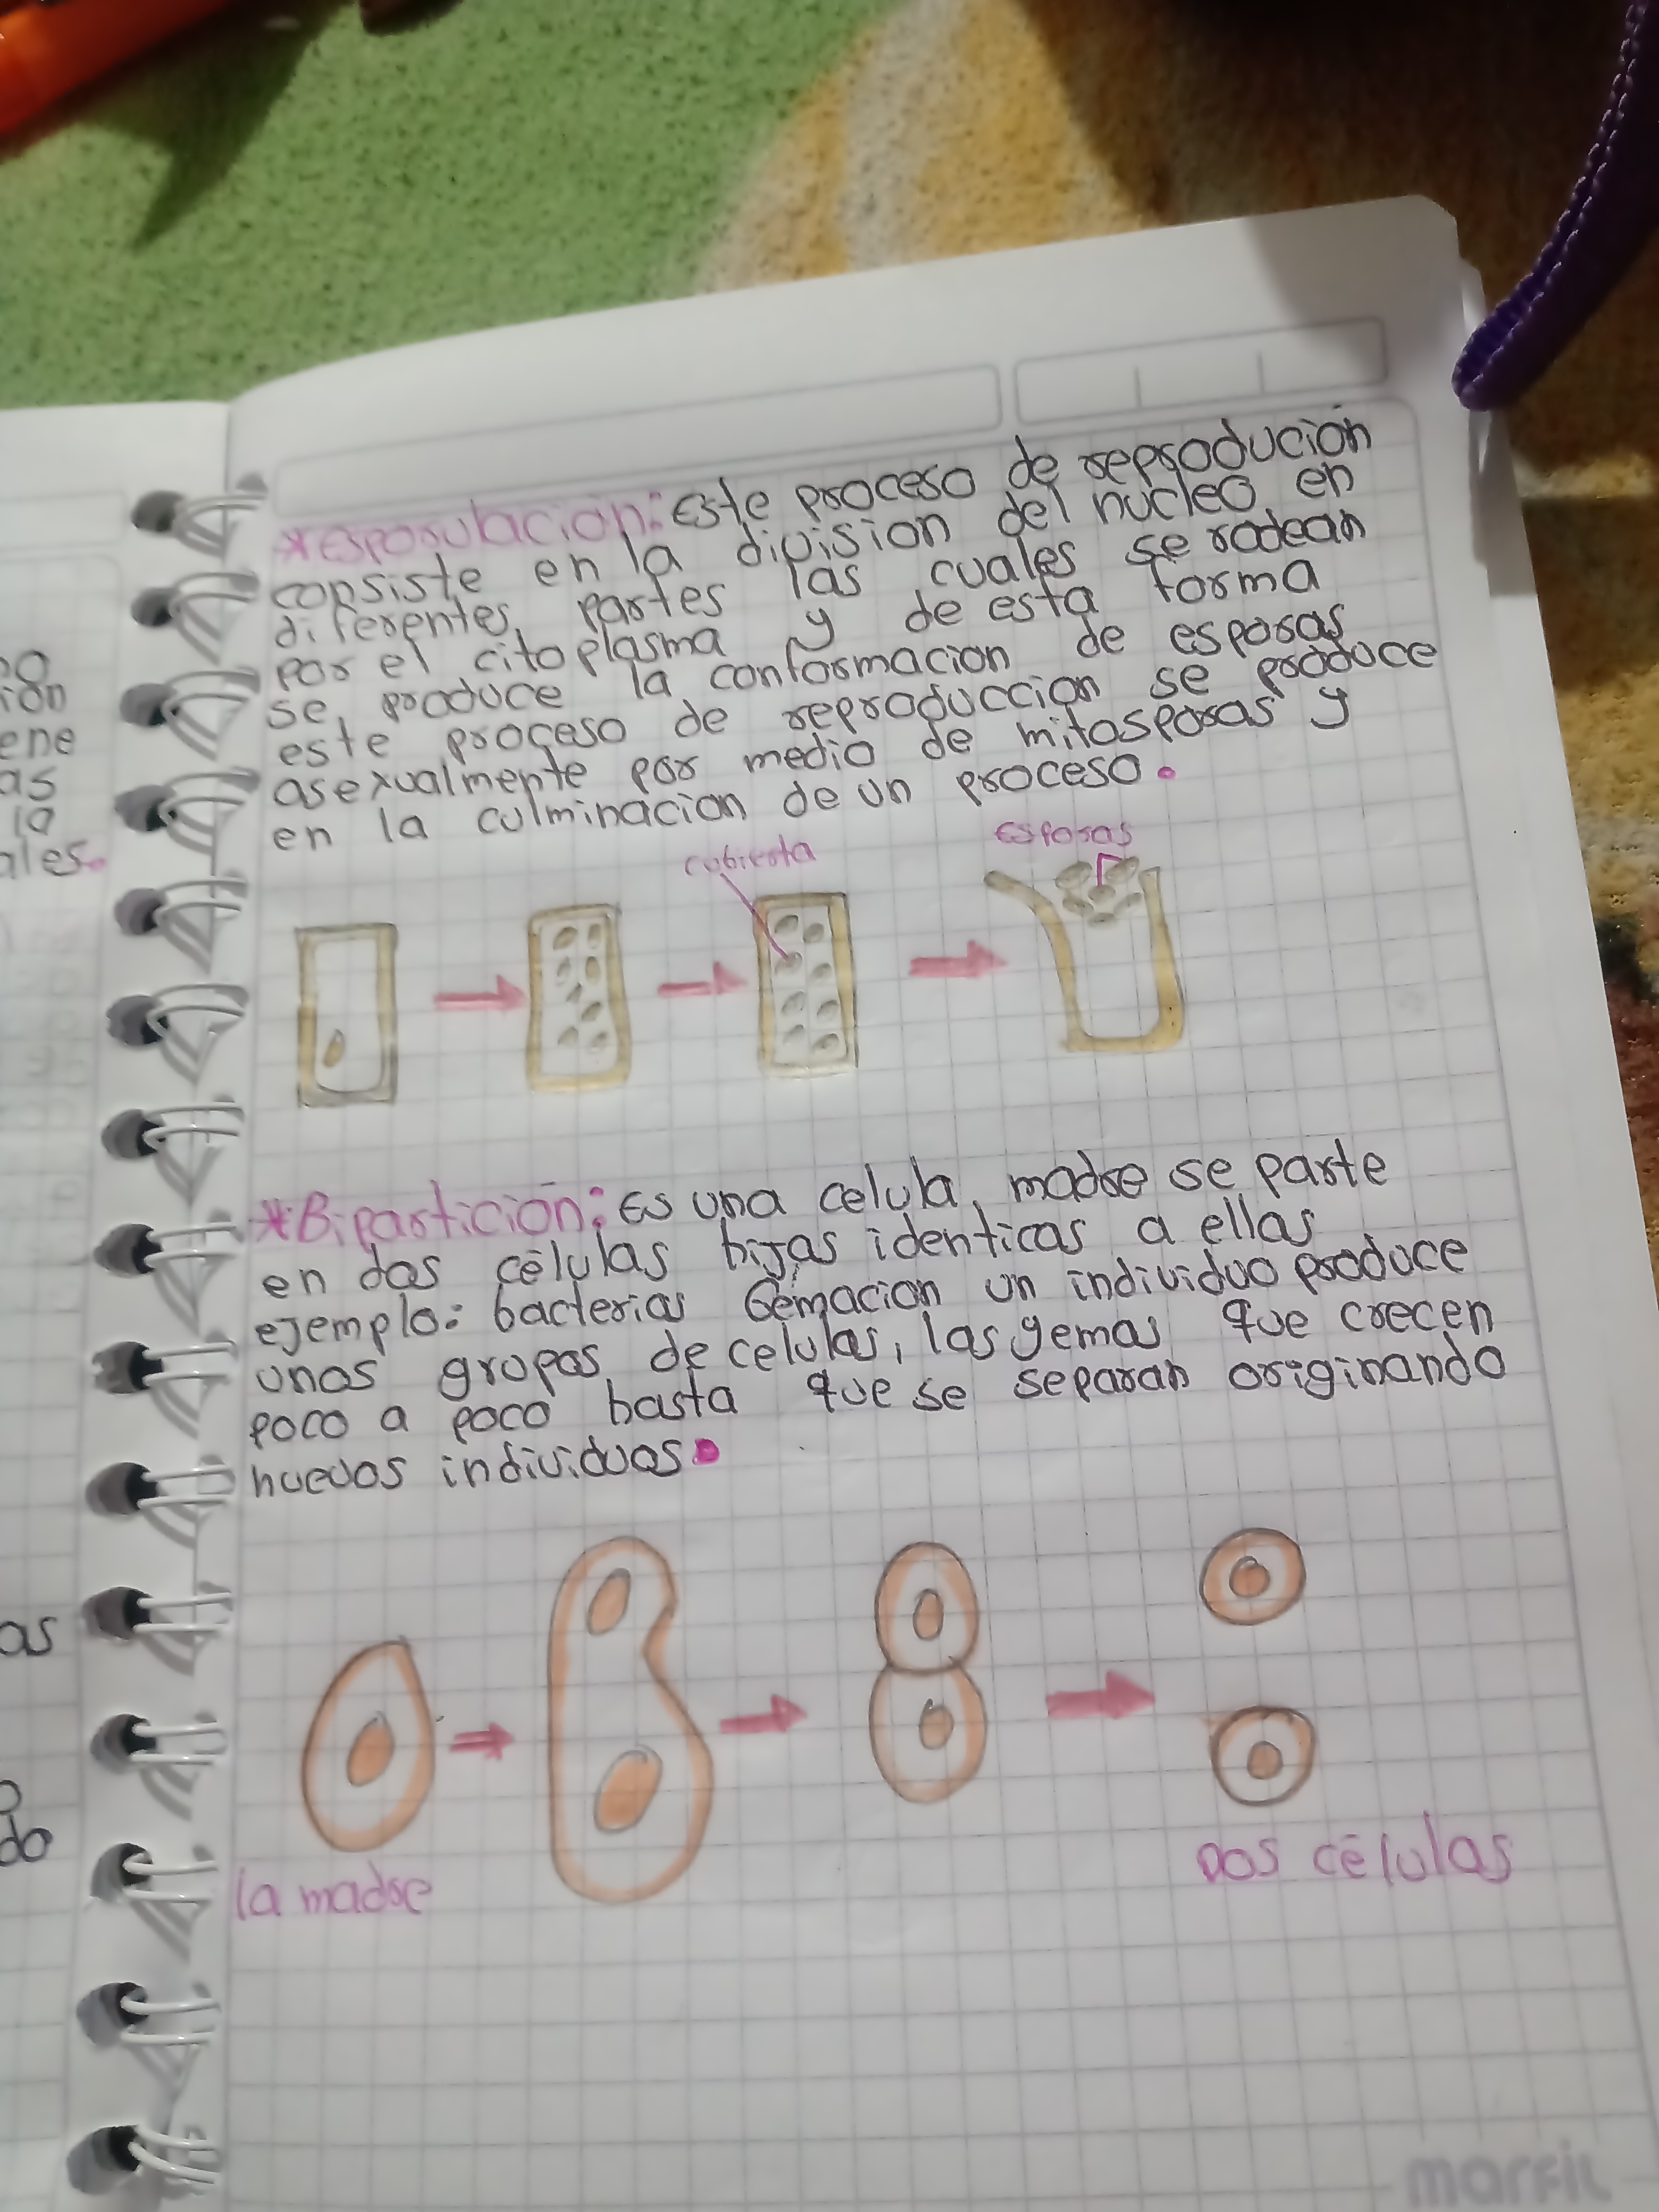 *esporulacion: Este proceso de reprodución
consiste en la division del nucleo en
diferentes partes las cuales se rodean
por el citoplasma y de esta forma
se produce la conformacion de esporas
este proceso de reproduccion se produce
asexualmente por medio de mitosporas y
en la culminacion de un proceso.
cobierta
esporas
*Bipartición: Es una celula madre se parte
en dos células hijas identicas a ellas
ejemplo: bacterias Gemacion un individuo produce
unos grupos de celulas, las gemas que crecen
poco a poco hasta que se separan originando
nuevos individuos.
la madre
Dos células
ión
ene
as
la
ales.
as
do
marfil